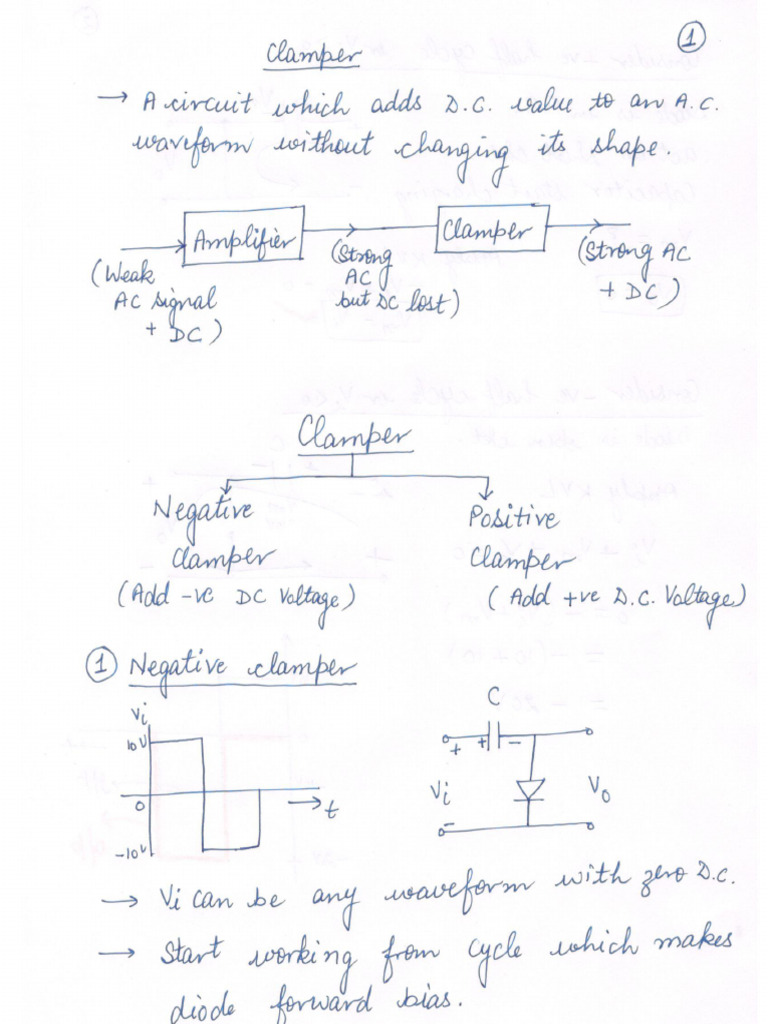 1
Clamper
→ A circuit which adds D.C. value to an A.C.
waveform without changing its shape.
Amplifier
Clamper
(Weak
AC signal
+ DC)
(Strong
AC
but DC lost)
(Strong AC
+ DC)
Clamper
Negative
clamper
(Add -ve DC Voltage)
Positive
clamper
(Add +ve D.C. Voltage)
1 Negative clamper
Vi
10V
0
-10V
→ t
C
+ + -
Vi
Vo
-
→ Vi can be any waveform with zero D.C.
→ Start working from cycle which makes
diode forward bias.